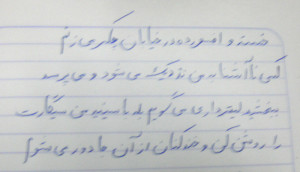 خسته و افسرده در خیابان چکر می زنم
کسی نا آشنا سی نزدیک می شود و می پرسد
ببخشید لیتر داری می گویم بله با سینه من سیگارت
را روشن کن و خندکنان از آن جا دور می شوم